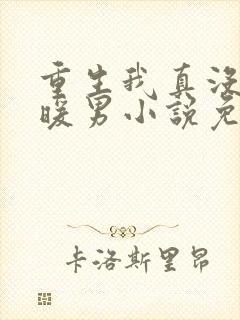 重生我真没
暖男小说免
卡洛斯里昂